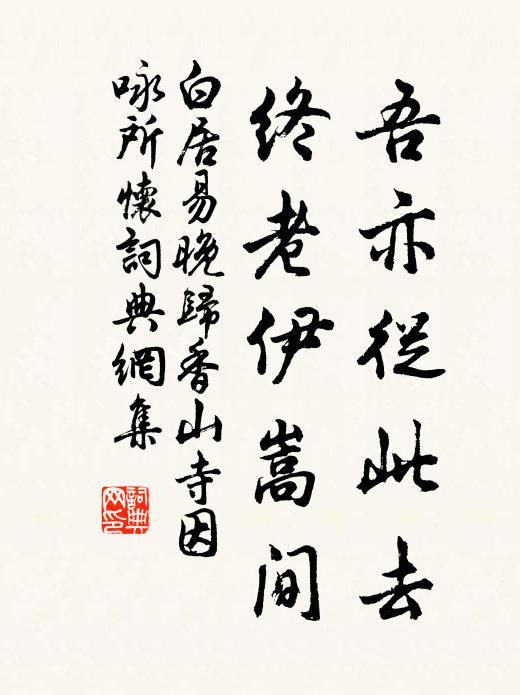 吾亦從此去
終老伊嵩間
白居易晚歸香山寺因
咏所懷詞典網集
詞典
网印